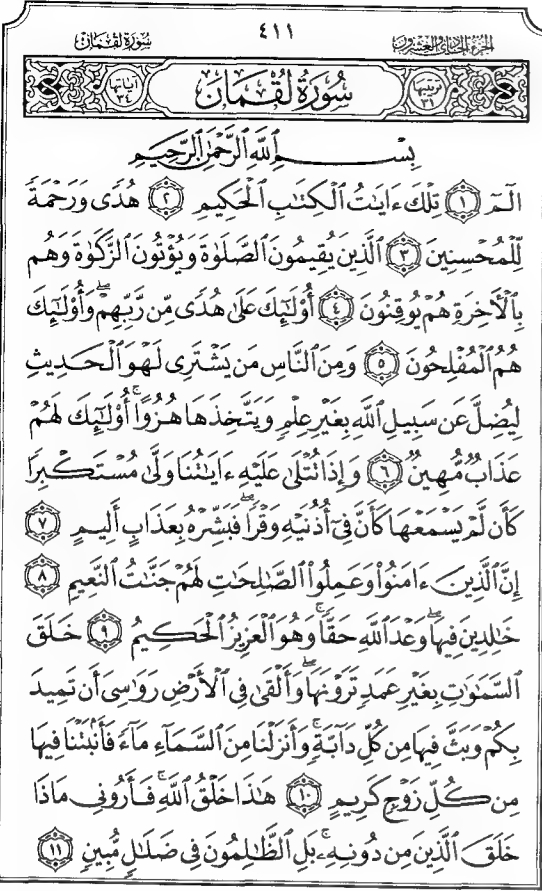 الجزء الحادي والعشرون ٤١١ سورة لقمان
ترتيبها ٣١ سُورَةُ لُقْمَانَ آياتها ٣٤
بِسْمِ ٱللَّهِ ٱلرَّحْمَٰنِ ٱلرَّحِيمِ
الٓمٓ ١ تِلْكَ ءَايَٰتُ ٱلْكِتَٰبِ ٱلْحَكِيمِ ٢ هُدًى وَرَحْمَةً
لِّلْمُحْسِنِينَ ٣ ٱلَّذِينَ يُقِيمُونَ ٱلصَّلَوٰةَ وَيُؤْتُونَ ٱلزَّكَوٰةَ وَهُم
بِٱلْءَاخِرَةِ هُمْ يُوقِنُونَ ٤ أُو۟لَٰٓئِكَ عَلَىٰ هُدًى مِّن رَّبِّهِمْ ۖ وَأُو۟لَٰٓئِكَ
هُمُ ٱلْمُفْلِحُونَ ٥ وَمِنَ ٱلنَّاسِ مَن يَشْتَرِى لَهْوَ ٱلْحَدِيثِ
لِيُضِلَّ عَن سَبِيلِ ٱللَّهِ بِغَيْرِ عِلْمٍ وَيَتَّخِذَهَا هُزُوًا ۚ أُو۟لَٰٓئِكَ لَهُمْ
عَذَابٌ مُّهِينٌ ٦ وَإِذَا تُتْلَىٰ عَلَيْهِ ءَايَٰتُنَا وَلَّىٰ مُسْتَكْبِرًا
كَأَن لَّمْ يَسْمَعْهَا كَأَنَّ فِىٓ أُذُنَيْهِ وَقْرًا ۖ فَبَشِّرْهُ بِعَذَابٍ أَلِيمٍ ٧
إِنَّ ٱلَّذِينَ ءَامَنُوا۟ وَعَمِلُوا۟ ٱلصَّٰلِحَٰتِ لَهُمْ جَنَّٰتُ ٱلنَّعِيمِ ٨
خَٰلِدِينَ فِيهَا ۖ وَعْدَ ٱللَّهِ حَقًّا ۚ وَهُوَ ٱلْعَزِيزُ ٱلْحَكِيمُ ٩ خَلَقَ
ٱلسَّمَٰوَٰتِ بِغَيْرِ عَمَدٍ تَرَوْنَهَا ۖ وَأَلْقَىٰ فِى ٱلْأَرْضِ رَوَٰسِىَ أَن تَمِيدَ
بِكُمْ وَبَثَّ فِيهَا مِن كُلِّ دَآبَّةٍ ۚ وَأَنزَلْنَا مِنَ ٱلسَّمَآءِ مَآءً فَأَنۢبَتْنَا فِيهَا
مِن كُلِّ زَوْجٍ كَرِيمٍ ١٠ هَٰذَا خَلْقُ ٱللَّهِ فَأَرُونِى مَاذَا
خَلَقَ ٱلَّذِينَ مِن دُونِهِۦ ۚ بَلِ ٱلظَّٰلِمُونَ فِى ضَلَٰلٍ مُّبِينٍ ١١